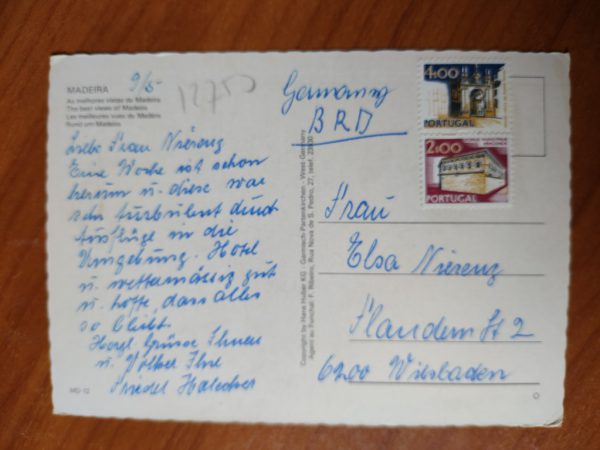 MADEIRA
As melhores vistas da Madeira
The best views of Madeira
Les meilleures vues de Madeira
Rund um Madeira
9/5-
12750
Liebe Frau Nierenz
Eine Woche ist schon
herum u. diese war
sehr turbulent durch
Ausflüge in die
Umgebung. Hotel
u. wettermässig gut
u. hoffe, dass alles
so bleibt.
Herzl. Grüsse Ihnen
u. Volker Ihre
Friedel
MD 12
Copyright by Hans Huber KG - Garmisch-Partenkirchen - West Germany
Agent au Funchal: F. Ribeiro, Rua Nova de S. Pedro, 27, telef.
Germany
BRD
4$00
PORTUGAL
2$00
PORTUGAL
Frau
Elsa Nierenz
Flandernst 2
6200 Wiesbaden